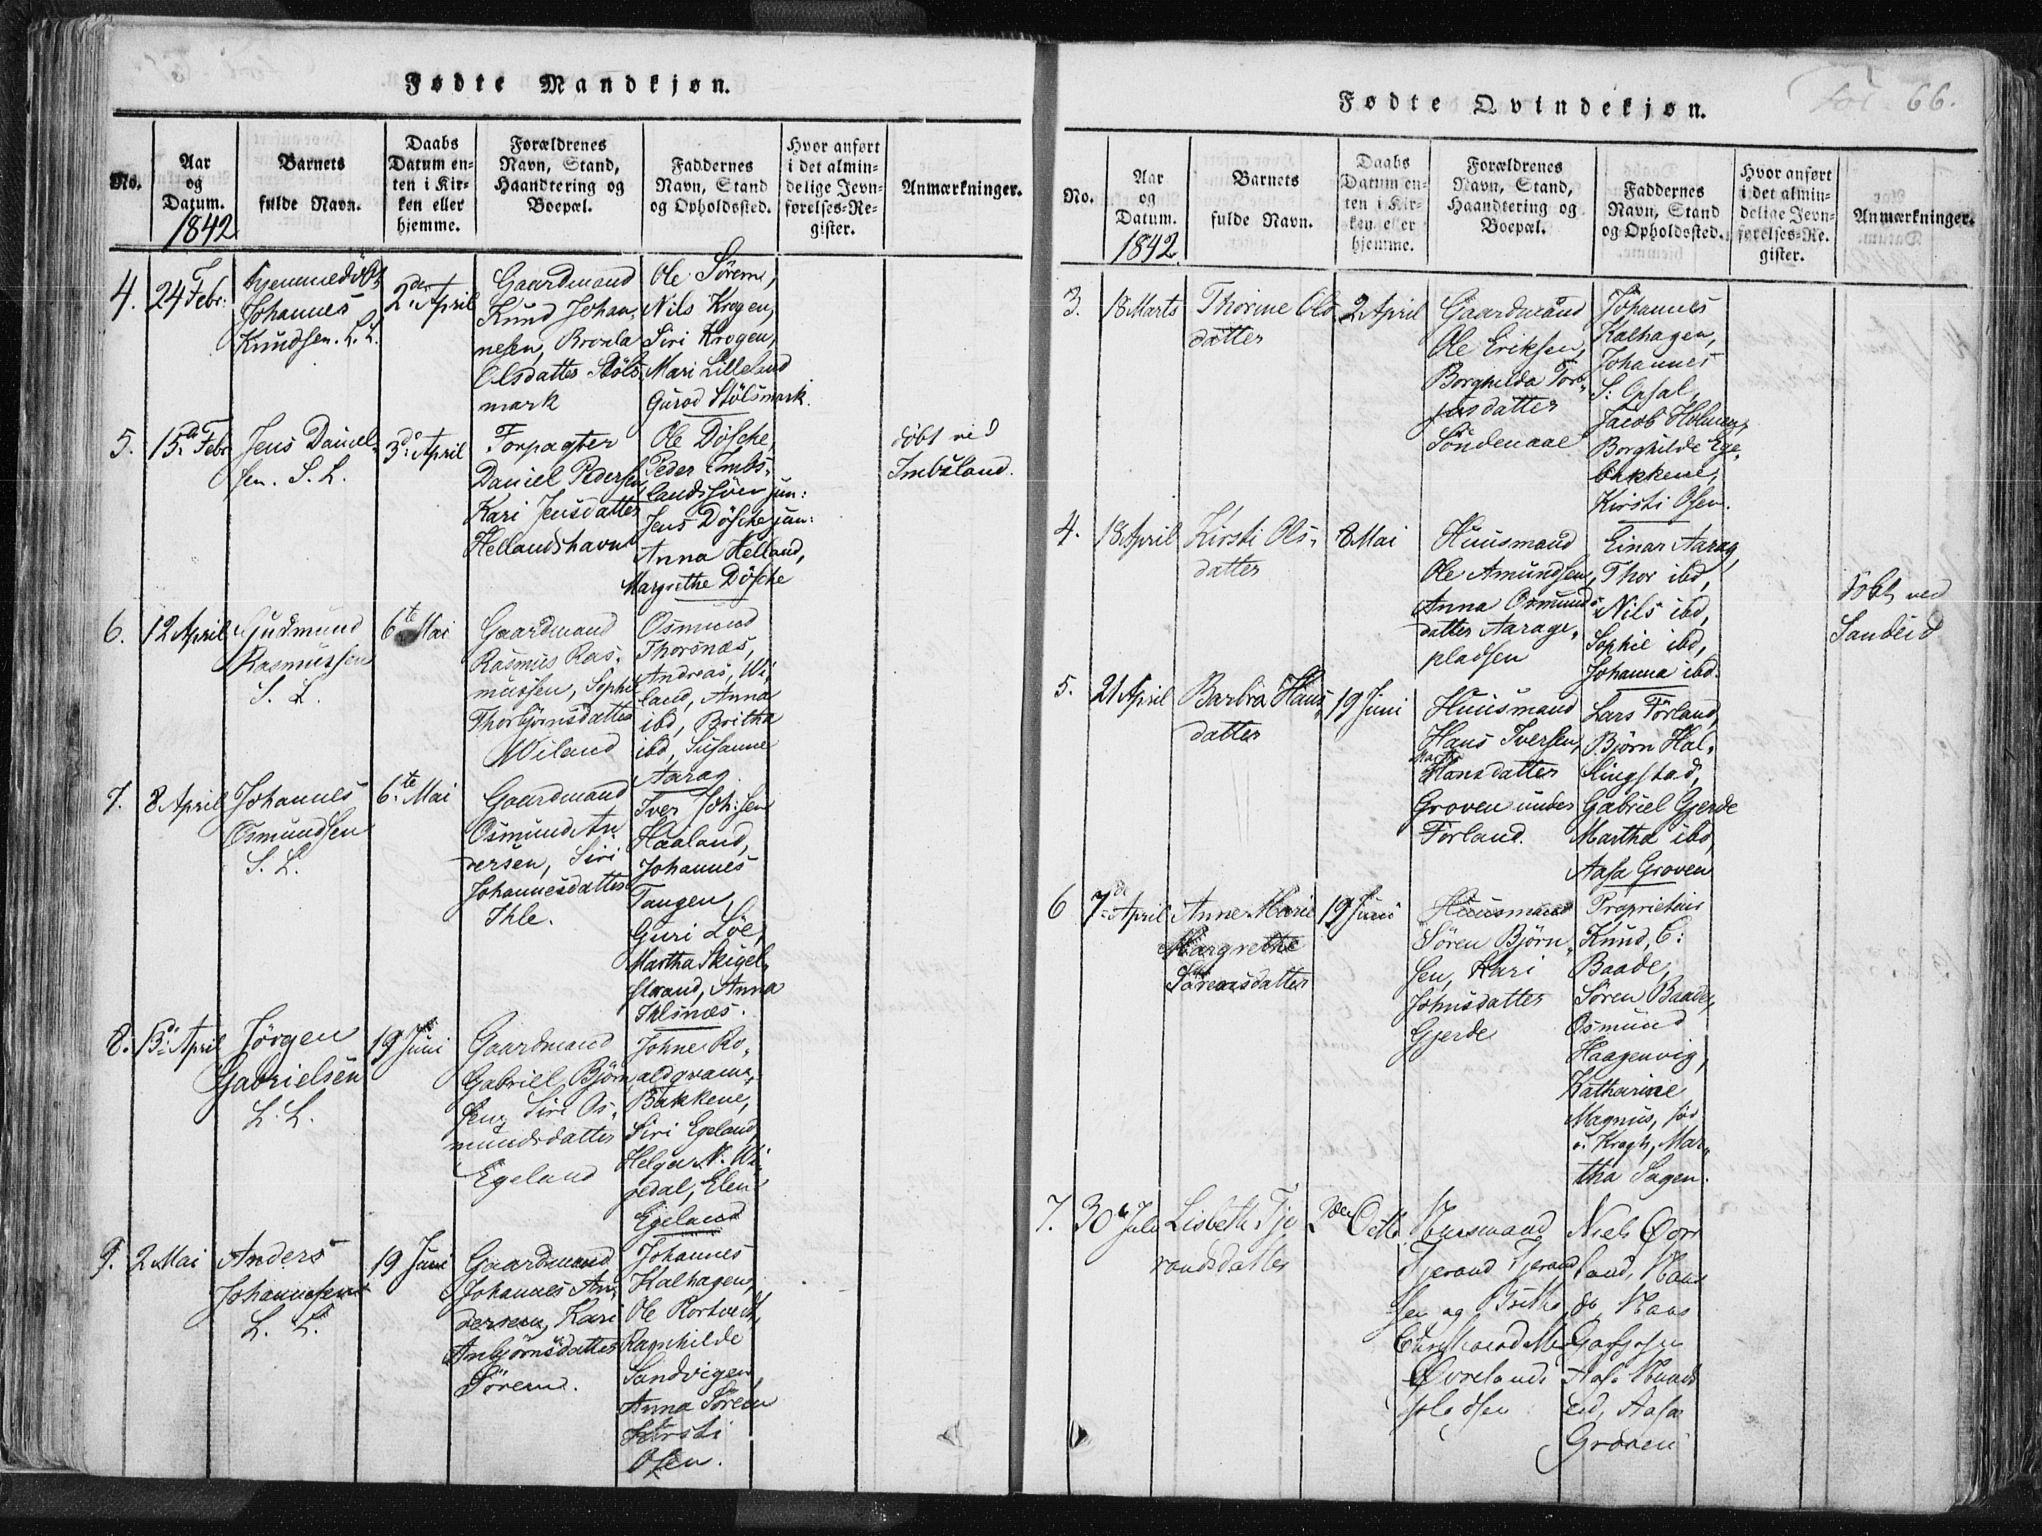 Fødte Mandkjøn.
No.
Aar
og
Datum.
1842
Barnets
fulde Navn.
Daabs
Datum en-
ten i Kir-
ken eller
hjemme.
Forældrenes
Navn, Stand,
Haandtering og
Boepæl.
Faddernes
Navn, Stand
og Opholdssted.
Hvor anført
i det almin-
delige Jevn-
førelses-Re-
gister.
Anmærkninger.
4.
24 Febr:
Hjemmedøbt
Johannes
Knudsen. L. L.
2den April
Gaardmand
Knud Johan-
nesen, Bronla
Olsdatter Støls-
mark
Ole Sørem,
Nils Krogen,
Siri Krogen,
Mari Lilleland
Guroe Stølsmark.
5.
15de Febr
Jens Daniel-
sen. S. L.
3de April
Forpagter
Daniel Pedersen,
Kari Jensdatter
Hellandshavn
Ole Døsche,
Peder Imbs-
landsøen jun:
Jens Døsche jun:
Anna Helland,
Margrethe Døsche
døbt ved
Imbsland.
6.
12 April
Gudmund
Rasmussen
S. L.
6te Mai
Gaardmand
Rasmus Ras-
mussen, Sophie
Thorbjørnsdatter
Wiland
Osmund
Thorsnæs,
Andreas, Wi-
land, Anna
ibd, Britha
ibd, Susanne
Aarag.
7.
8 April
Johannes
Osmundsen
S. L.
6te Mai
Gaardmand
Osmund An-
dersen, Siri
Johannesdatter
Ihle.
Iver Joh:sen
Haaland,
Johannes
Tangen,
Guri Løe,
Martha Skigel-
strand, Anna
Ihlsnæs.
8.
13de April
Jørgen
Gabrielsen
L. L.
19 Juni
Gaardmand
Gabriel Bjørn-
sen, Siri Os-
mundsdatter
Egeland
Johne Ro-
aldqvams-
Bakkene,
Siri Egeland,
Helga N. Wi-
gedal, Elen
Egeland
9.
2 Mai
Anders
Johannesen
L. L.
19 Juni
Gaardmand
Johannes An-
dersen, Kari
Anbjørnsdatter
Sørem.
Johannes
Kalhagen,
Ole Rortvedt,
Ragnhilde
Sandvigen
Anna Sørem
Kirsti
Osen.
66.
Fødte Qvindekjøn.
No.
Aar
og
Datum.
1842.
Barnets
fulde Navn.
Daabs
Datum en-
ten i Kir-
ken eller
hjemme.
Forældrenes
Navn, Stand,
Haandtering og
Boepæl.
Faddernes
Navn, Stand
og Opholdssted.
Hvor anført
i det almin-
delige Jevn-
førelses-Re-
gister.
Anmærkninger.
3.
18 Marts
Thorine Ols-
datter
2 April
Gaardmand
Ole Eriksen,
Borghilda Tor-
jusdatter
Søndenaae
Johannes
Kalhagen,
Johannes
S: Opsal,
Jacob Holmen,
Borghilde Ege-
bakkene,
Kirsti Osen.
4.
18 April
Kirsti Ols-
datter
8 Mai
Huusmand
Ole Amundsen,
Anna Osmunds-
datter Aarags-
pladsen
Einar Aarag,
Thor ibd,
Nils ibd,
Sophie ibd,
Johanna ibd.
døbt ved
Sandeid
5.
21 April
Barbra Hans-
datter
19 Juni
Huusmand
Hans Iversen,
Martha
Hansdatter
Groven under
Førland.
Lars Førland,
Bjørn Hal-
lingstad,
Gabriel Gjerde
Martha ibd,
Aasa Groven
6
7de April
Anne Marie
Margrethe
Sørensdatter
19 Juni
Huusmand
Søren Bjørn-
sen, Kari
Johnsdatter
Gjerde
Proprietair
Knud, C:
Baade,
Søren Baade,
Osmund
Haagenvig,
Katharine
Magnus, fød
v. Krogh, Mar-
tha Sagen.
7.
30 Juli
Lisbeth Tje-
randsdatter
2den Octb.
Huusmand
Tjerand Tjerand-
sen og Britha
Øvrelands
pladsen
Niels Øvre-
land, Hans
do, Hans
Aasa
eid, Aasa
Groven